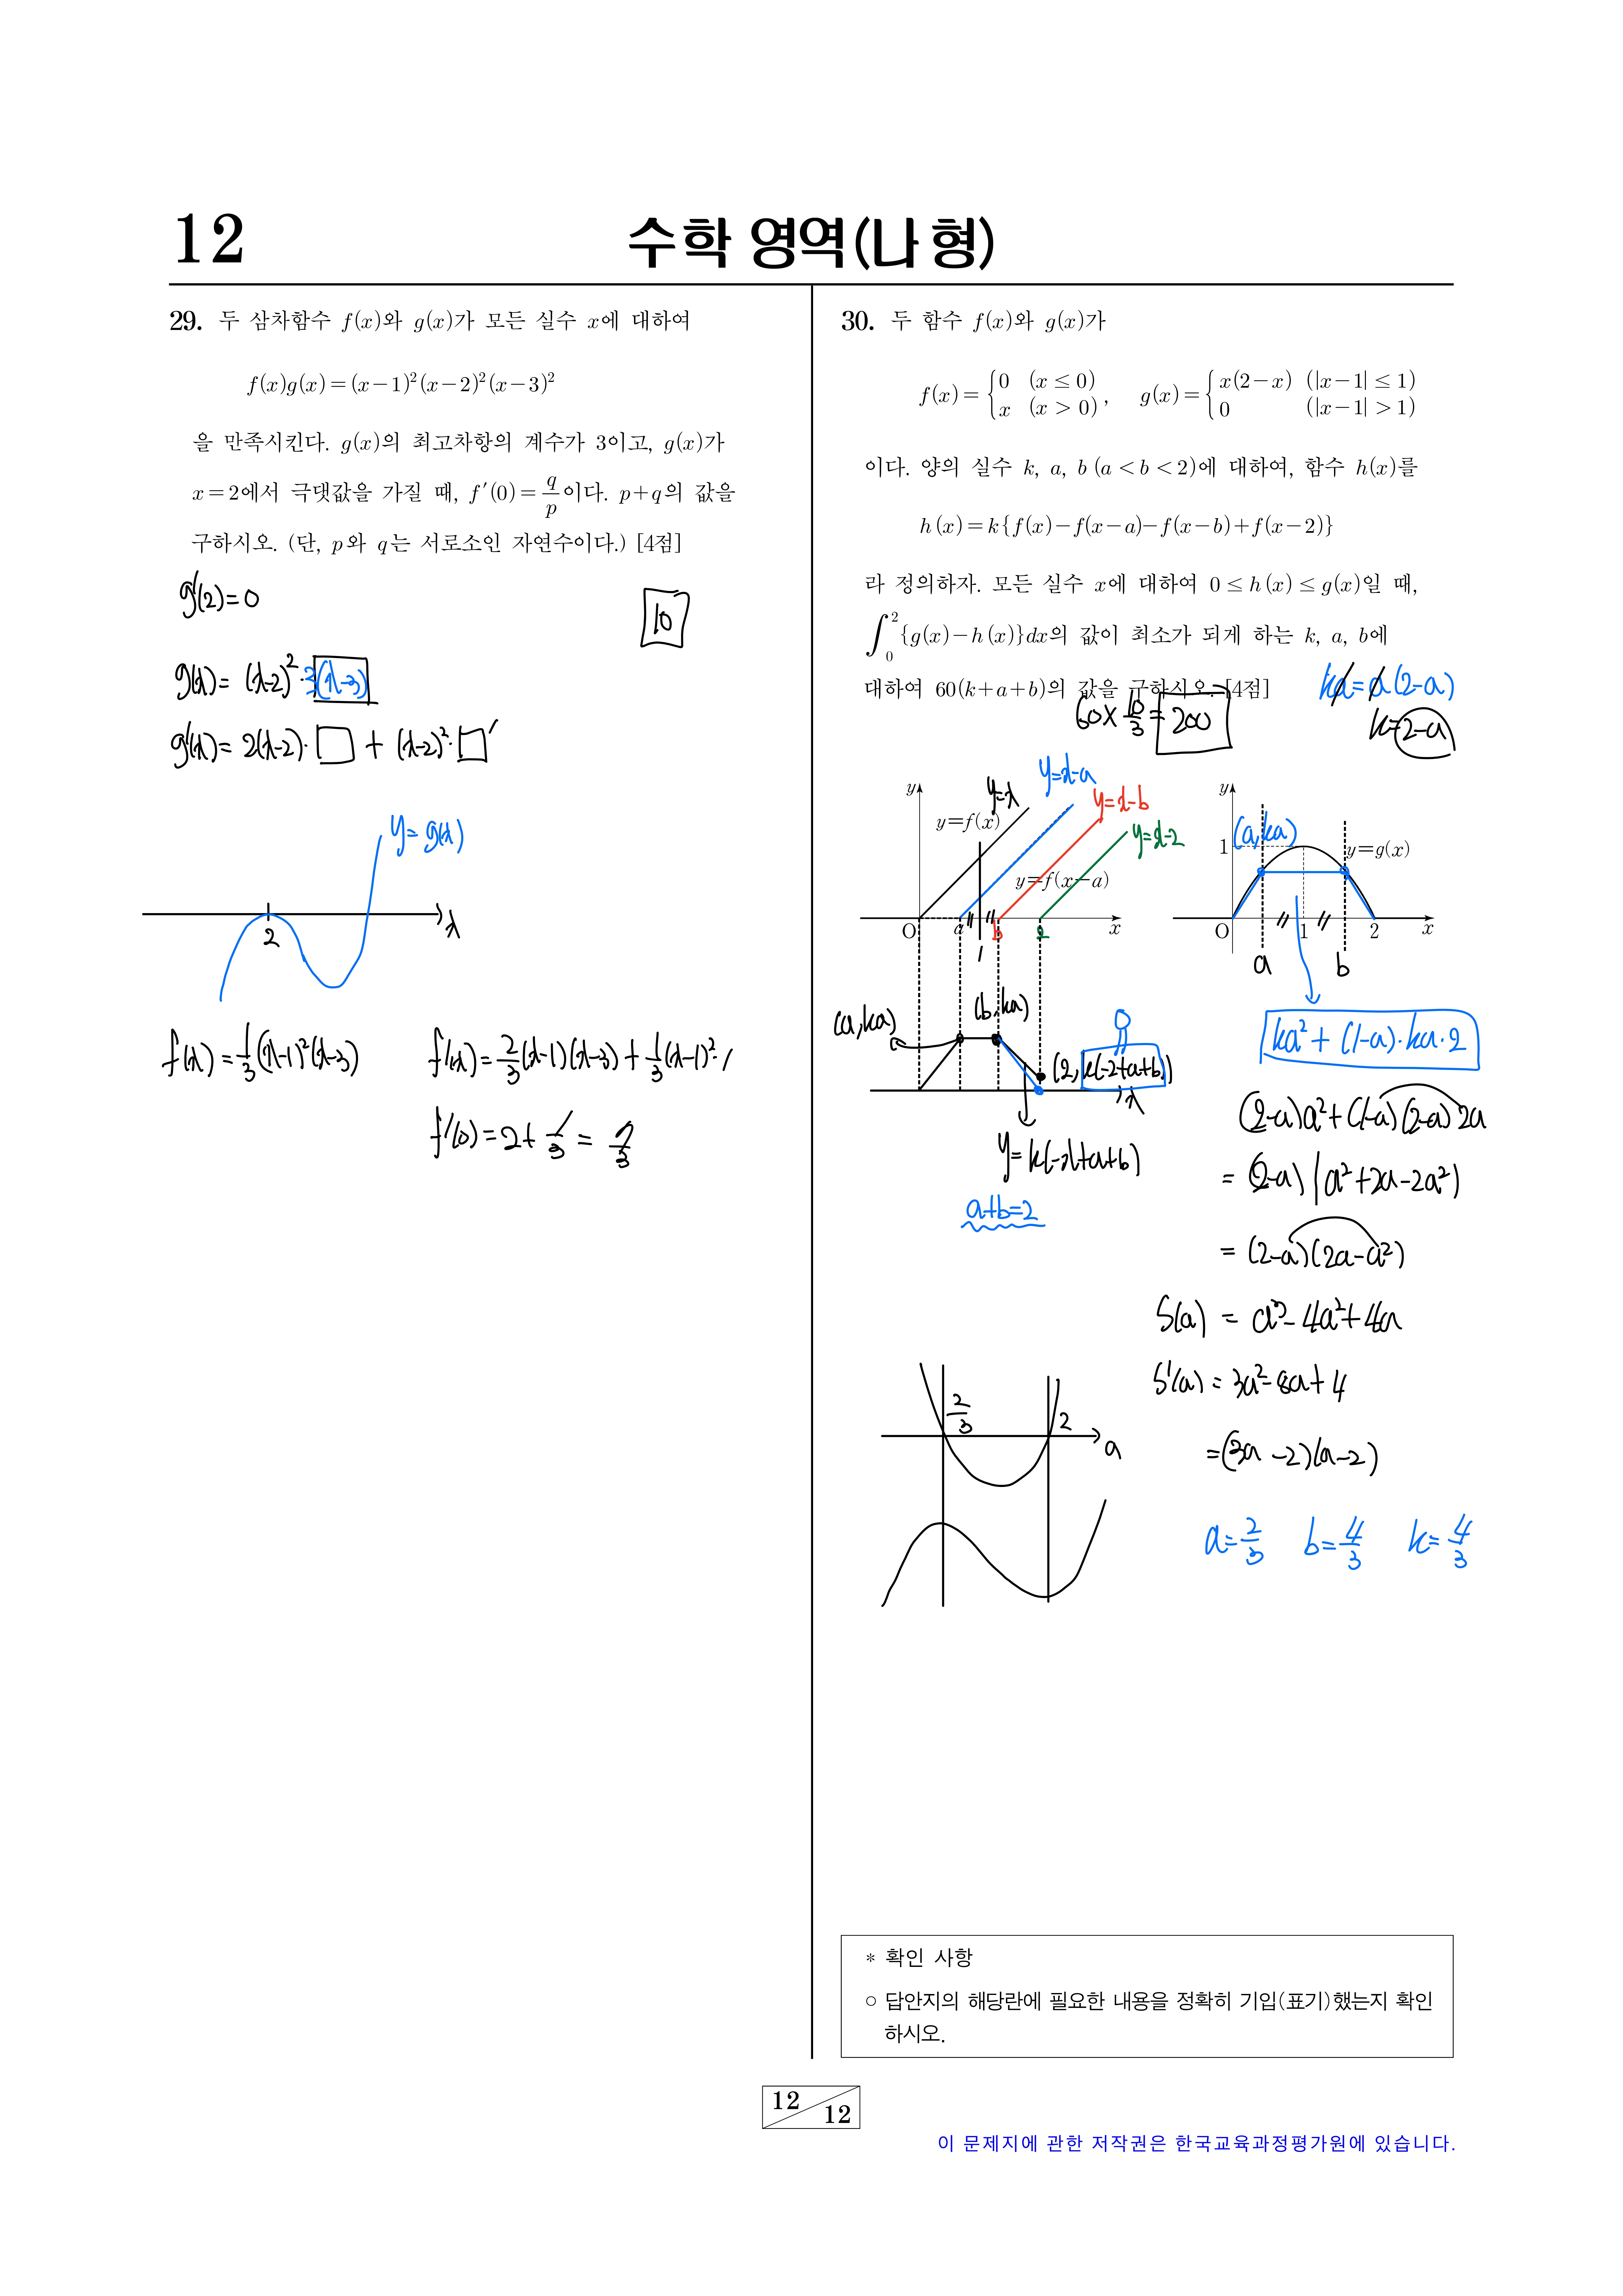 12
수학 영역(나 형)
29. 두 삼차함수 f(x)와 g(x)가 모든 실수 x에 대하여
f(x)g(x)=(x-1)²(x-2)²(x-3)²
을 만족시킨다. g(x)의 최고차항의 계수가 3이고, g(x)가
x=2에서 극댓값을 가질 때, f′(0)=q/p이다. p+q의 값을
구하시오. (단, p와 q는 서로소인 자연수이다.) [4점]
g'(2)=0
10
g(x)= (x-2)²·3(x-3)
g'(x)= 2(x-2)·□ + (x-2)²·□'
y=g(x)
2
x
f(x)=1/3(x-1)²(x-3)
f'(x)=2/3(x-1)(x-3)+1/3(x-1)²·1
f'(0)=2+1/3=7/3
30. 두 함수 f(x)와 g(x)가
f(x)={0 (x≤0) x (x>0), g(x)={x(2-x) (|x-1|≤1) 0 (|x-1|>1)
이다. 양의 실수 k, a, b (a<b<2)에 대하여, 함수 h(x)를
h(x)=k{f(x)-f(x-a)-f(x-b)+f(x-2)}
라 정의하자. 모든 실수 x에 대하여 0≤h(x)≤g(x)일 때,
∫₀²{g(x)-h(x)}dx의 값이 최소가 되게 하는 k, a, b에
대하여 60(k+a+b)의 값을 구하시오. [4점]
ka=a(2-a)
k=2-a
60×10/3=200
y
y=x
y=x-a
y=x-b
y=x-2
y=f(x)
y=f(x-a)
O
a
b
2
x
1
y
(a,ka)
1
y=g(x)
O
1
2
x
a
b
(a,ka)
(b,ka)
0
(2,k(-2+a+b))
x
y=k(-x+a+b)
a+b=2
ka²+(1-a)·ka·2
(2-a)a²+(1-a)(2-a)2a
= (2-a)(a²+2a-2a²)
= (2-a)(2a-a²)
S(a) = a³-4a²+4a
S'(a) = 3a²-8a+4
=(3a-2)(a-2)
2/3
2
a
a=2/3 b=4/3 k=4/3
* 확인 사항
○ 답안지의 해당란에 필요한 내용을 정확히 기입(표기)했는지 확인
하시오.
12
12
이 문제지에 관한 저작권은 한국교육과정평가원에 있습니다.